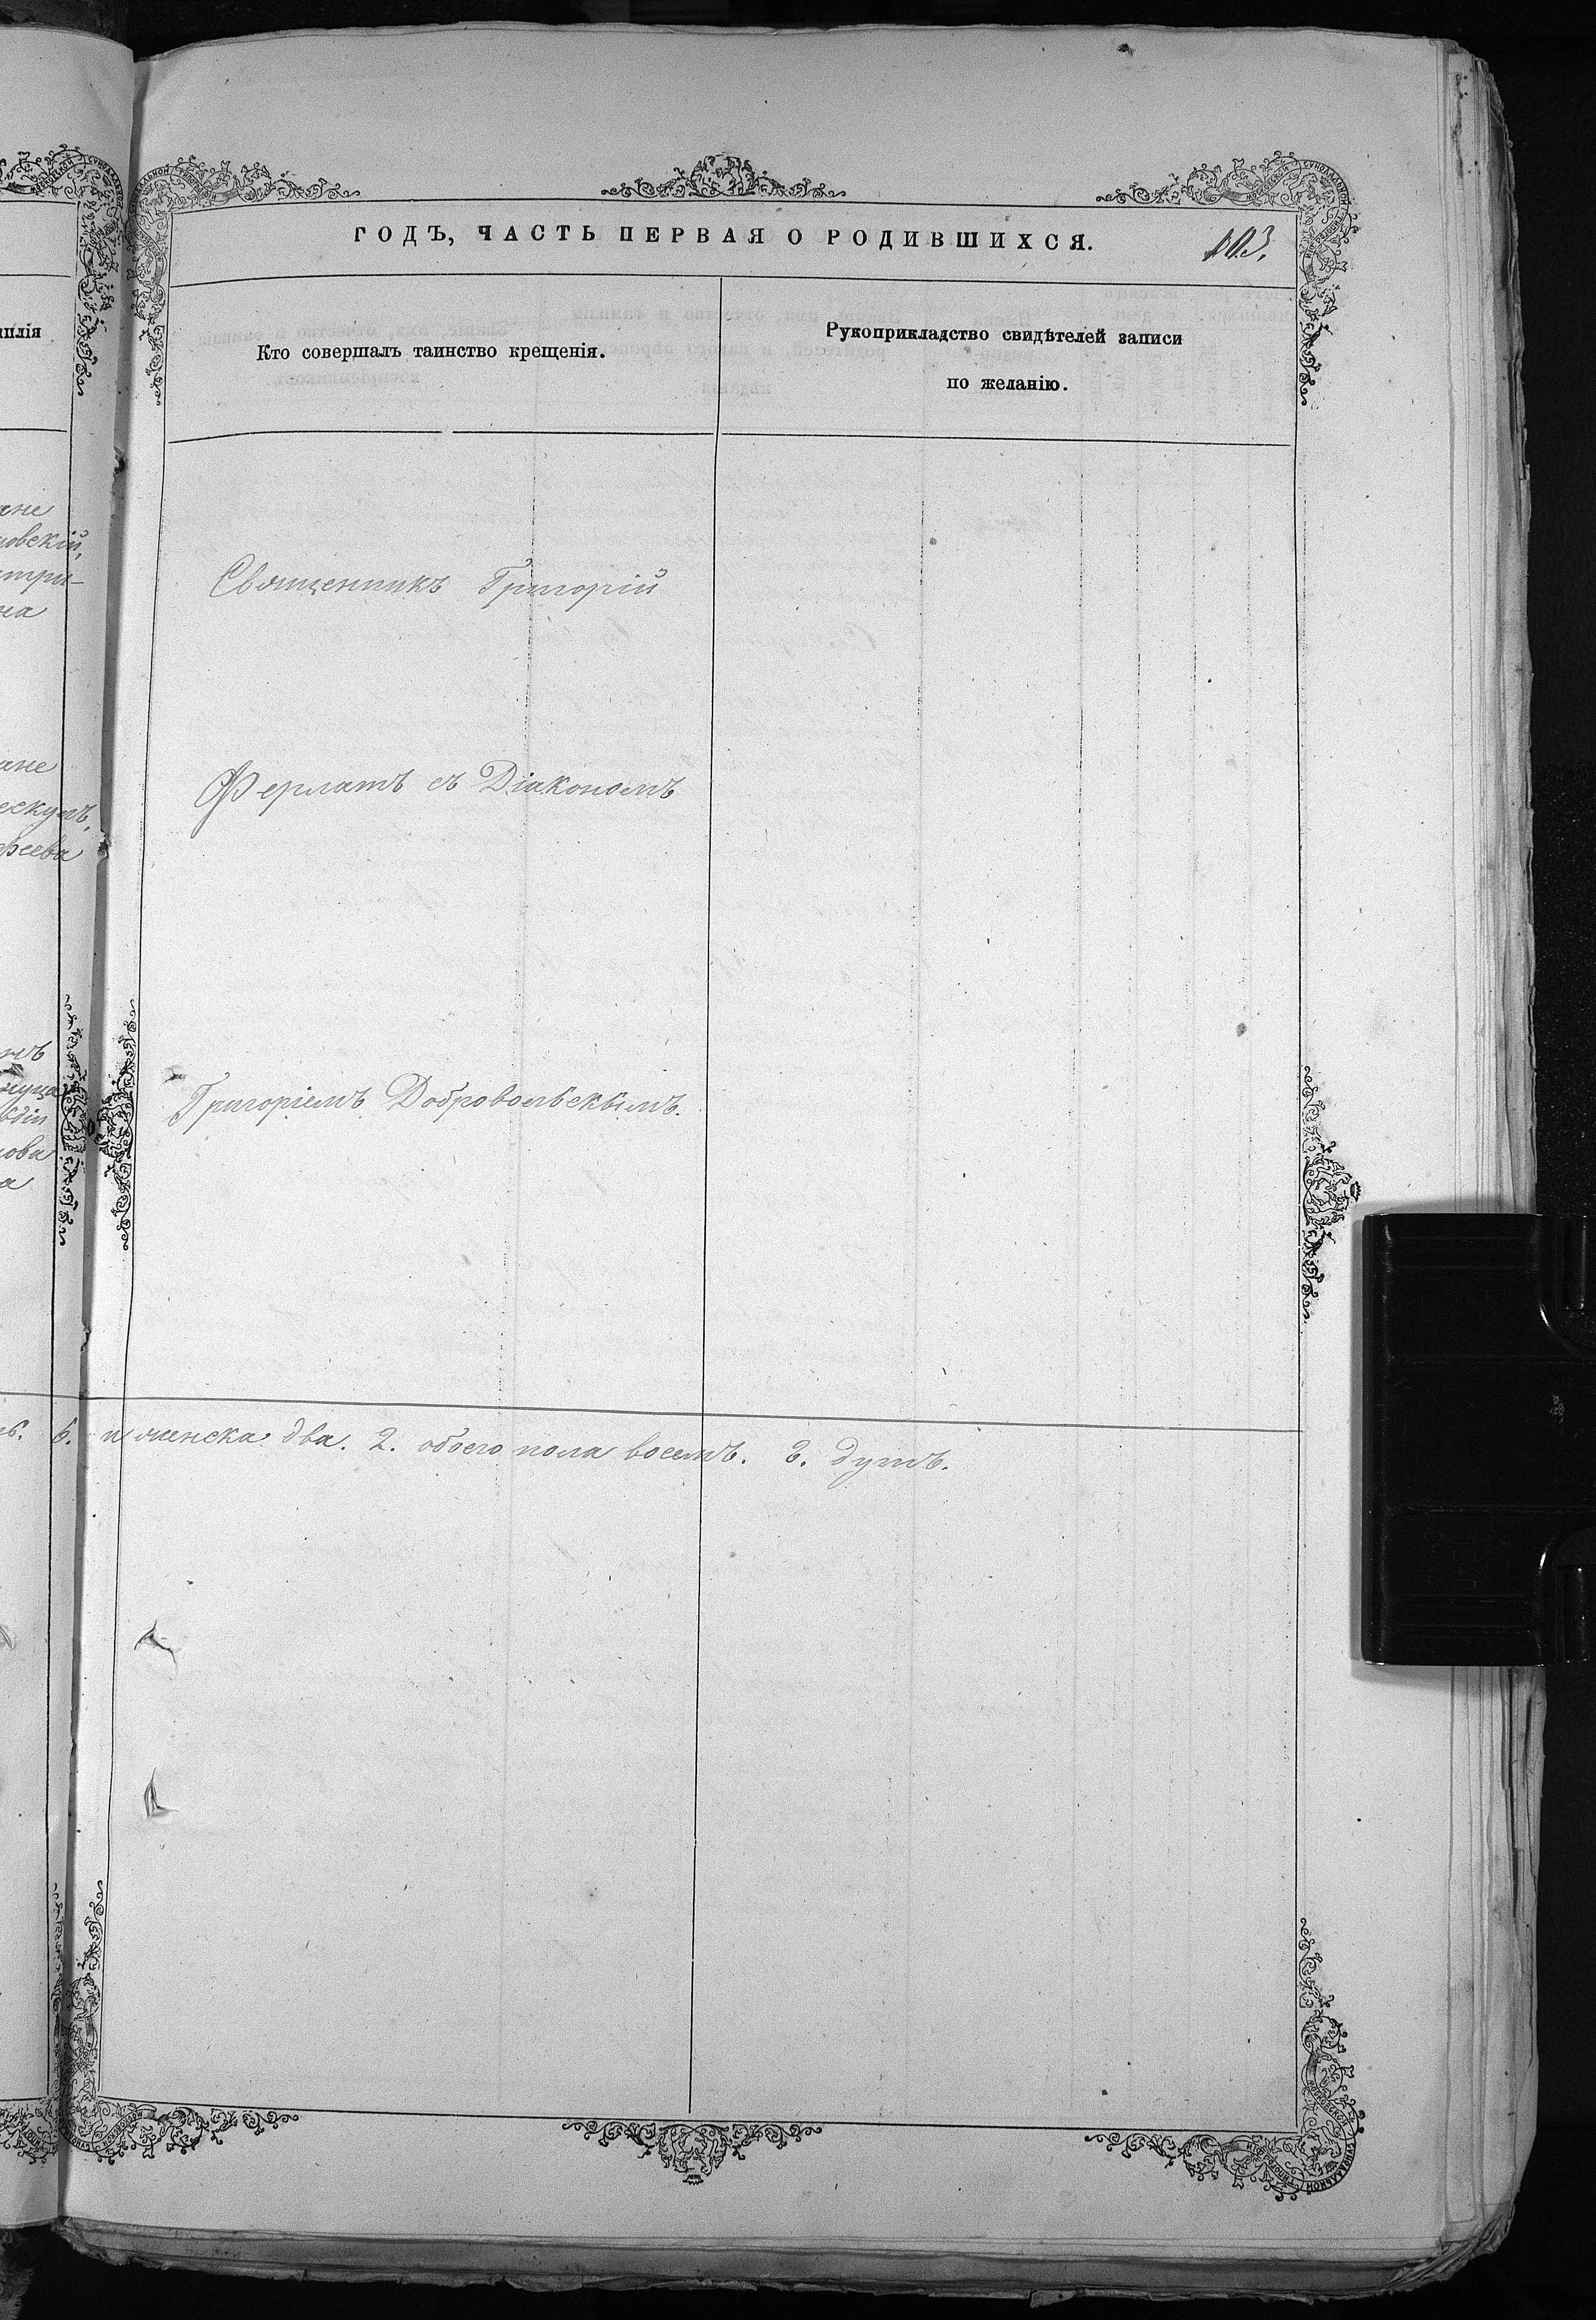 ГОДЪ, ЧАСТЬ ПЕРВАЯ О РОДИВШИХСЯ.
103.
Кто совершалъ таинство крещенія.
Рукоприкладство свидѣтелей записи
по желанію.
Священникъ Григорій
Ферлатъ съ Діакономъ
Григоріемъ Добровольскимъ.
6. и женска два. 2. обоего пола восемь. 8. душъ.